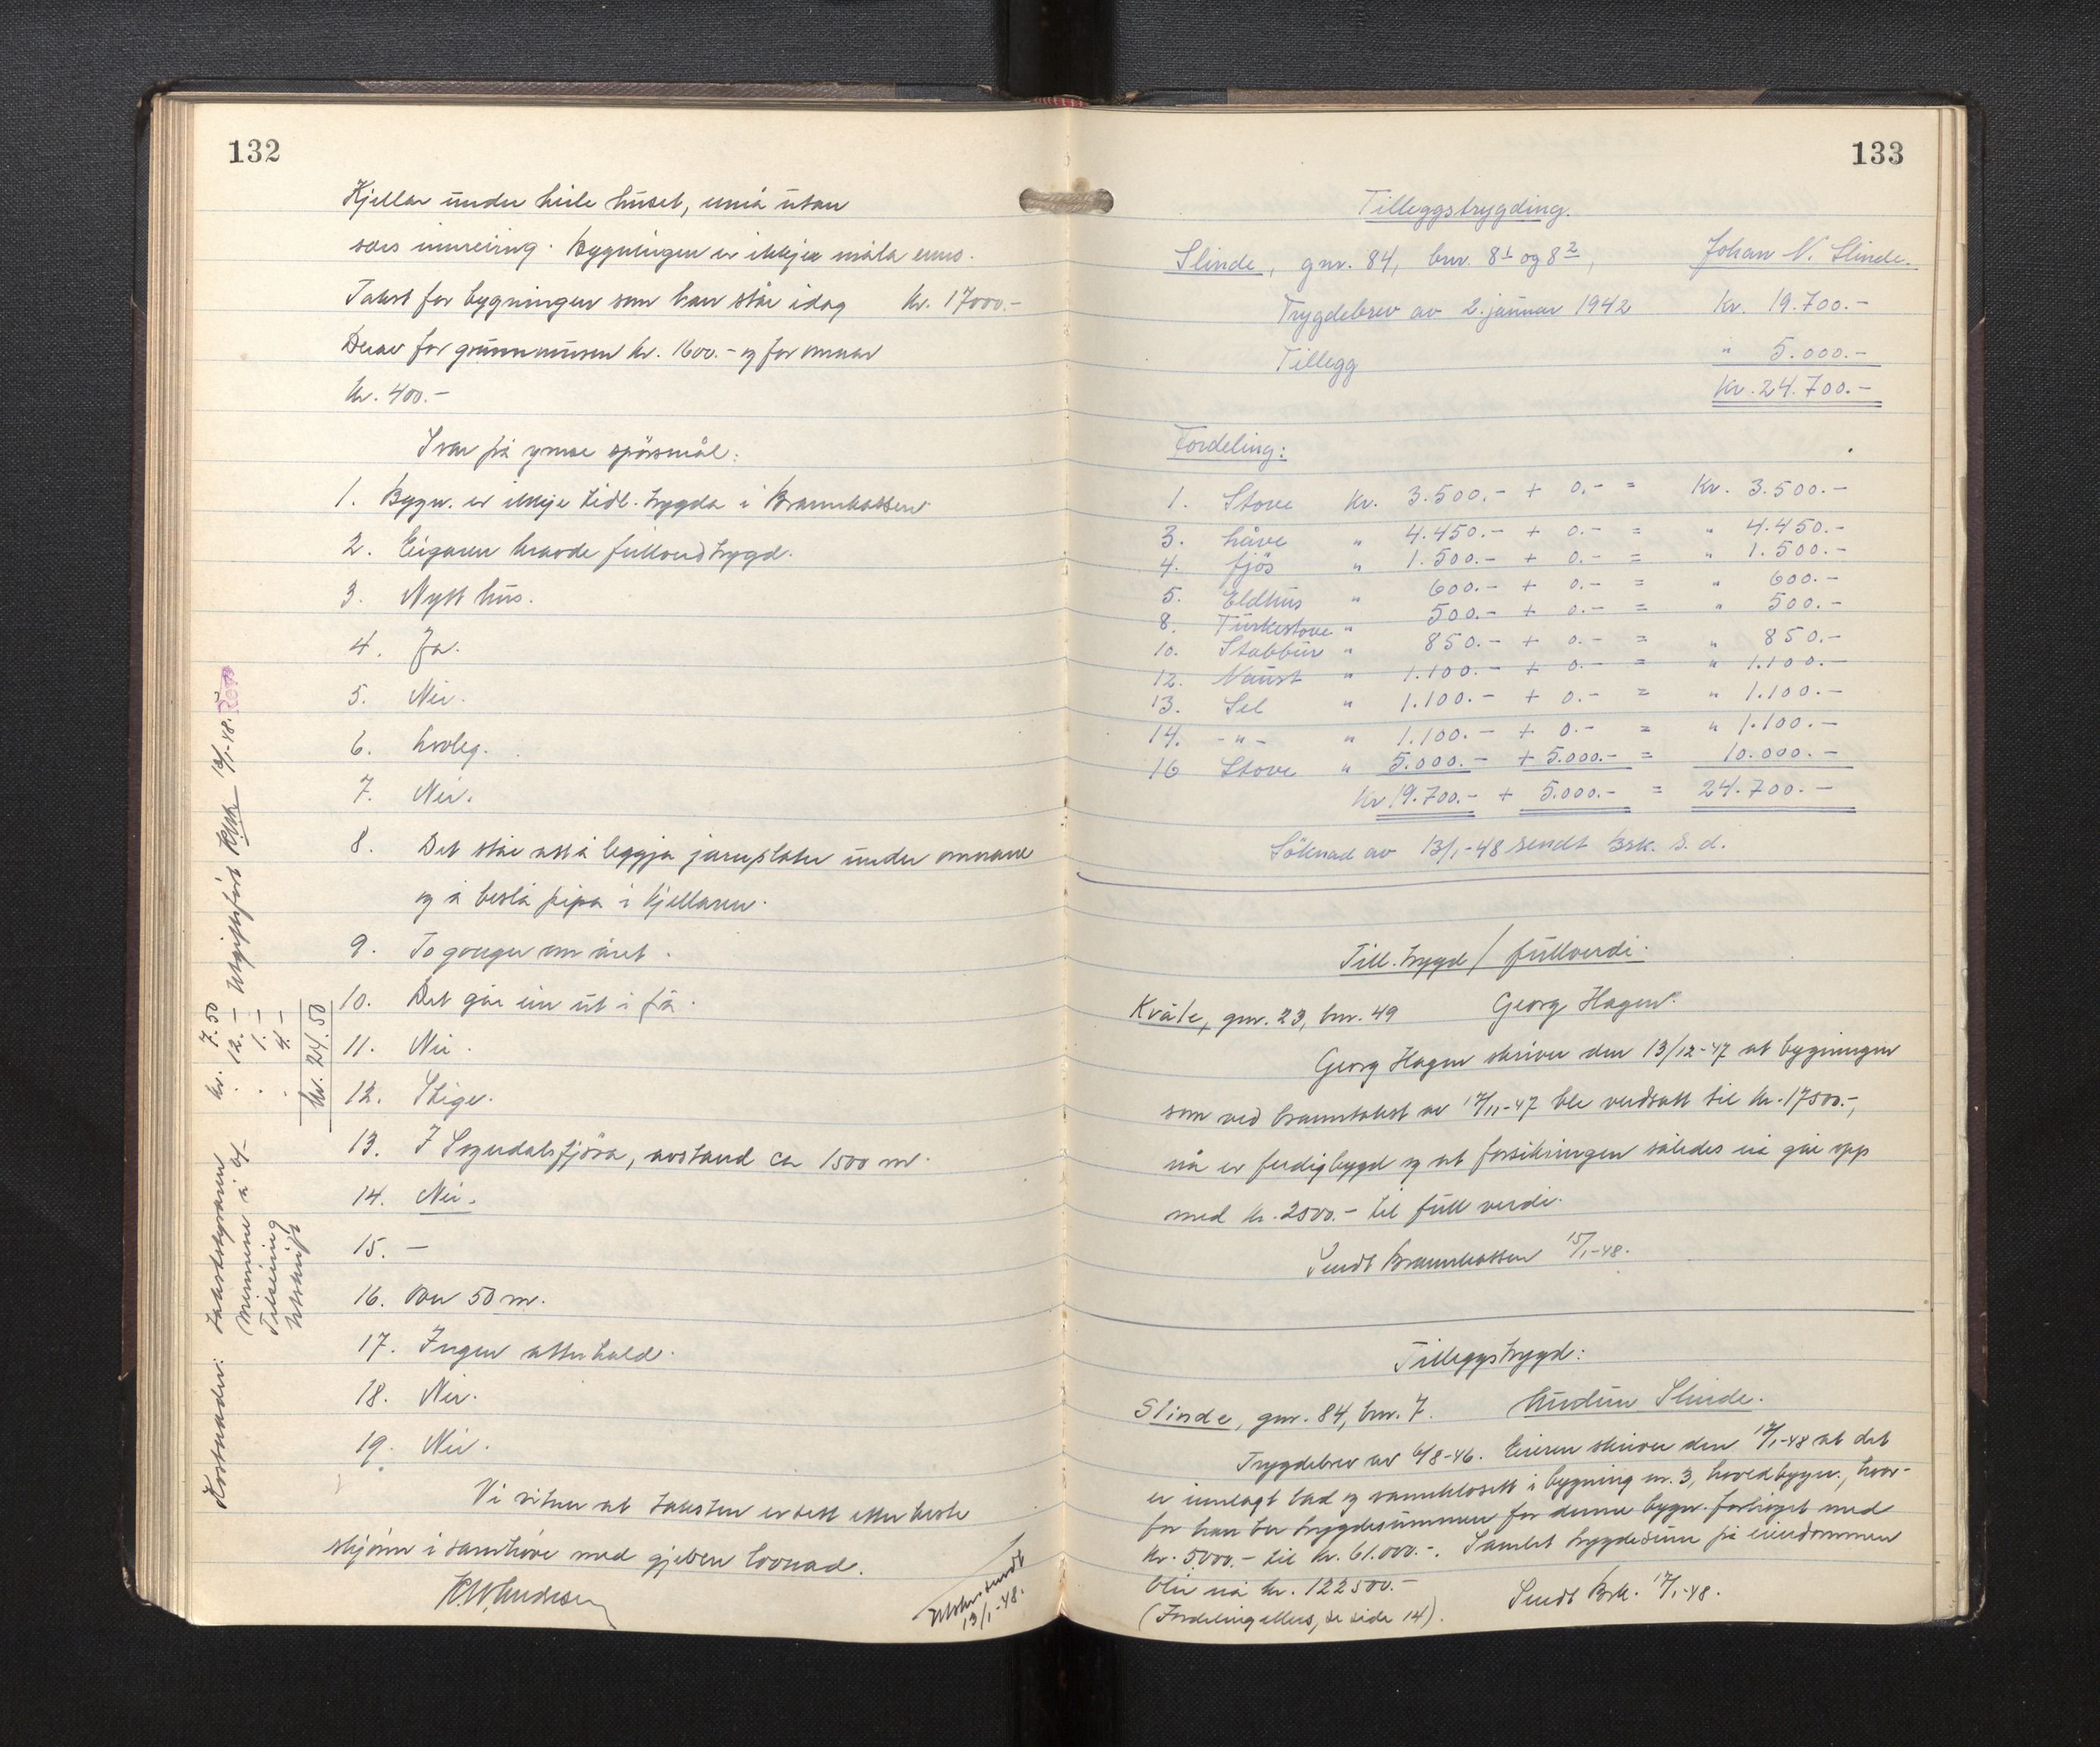 132
Kjellar under heile huset, enná utan
særs innreiing. Bygningen er ikkje måla enno.
Takst for bygningen som han står idag kr. 17000.-
Derav for grunnmuren kr. 1600.- og for omnar
kr. 400.-
Svar på ymse spörsmål:
1. Bygn. er ikkje tidl. trygda i Brannkassen
2. Eigaren kravde fullverdtrygd.
3. Nytt hus.
4. Ja.
5. Nei.
6. Roleg.
7. Nei.
8. Det står att å leggja jarnplater under omnane
og å beslå pipa i kjellaren.
9. To gonger om året.
10. Det går inn ut i frå.
11. Nei.
12. Stige.
13. I Sogndalsfjöra, avstand ca 1500 m.
14. Nei.
15. —
16. Over 50 m.
17. Ingen atterhald.
18. Nei.
19. Nei.
Vi vitner at taksten er sett etter beste
skjönn i samhöve med gjeven lovnad.
Utskr. sendt
13/1-48.
Kostnader: Takststyraren kr. 7.50
mennene á 6/- " 12.-
Tilseining " 1.-
Utskrift " 4.-
kr. 24.50
Utgiftsfört 13/1-48.
133
Tilleggstrygding.
Slinde, gnr. 84, bnr. 8¹ og 8², Johan N. Slinde.
Trygdebrev av 2. januar 1942 Kr. 19.700.-
Tillegg " 5.000.-
Kr. 24.700.-
Fordeling:
1. Stove Kr. 3.500.- + 0.- = Kr. 3.500.-
3. Låve " 4.450.- + 0.- = " 4.450.-
4. fjös " 1.500.- + 0.- = " 1.500.-
5. Eldhus " 600.- + 0.- = " 600.-
8. Turkestove " 500.- + 0.- = " 500.-
10. Stabbur " 850.- + 0.- = " 850.-
12. Naust " 1.100.- + 0.- = " 1.100.-
13. Sel " 1.100.- + 0.- = " 1.100.-
14. -"- " 1.100.- + 0.- = " 1.100.-
16 Stove " 5.000.- + 5.000.- = 10.000.-
Kr 19.700.- + 5.000.- = 24.700.-
Söknad av 13/1-48 sendt Brk. s. d.
Till. trygd / fullverdi.
Kvåle, gnr. 23, bnr. 49 Georg Hagen.
Georg Hagen skriver den 13/12-47 at bygningen
som ved branntakst av 17/11-47 ble verdsatt til kr. 17500.-,
nå er ferdigbygd og at forsikringen således må gå opp
med kr. 2500.- til full verdi.
Sendt Brannkassen 15/1-48.
Tilleggstrygd:
Slinde, gnr. 84, bnr. 7. Audun Slinde.
Trygdebrev av 6/8-46. Eieren skriver den 17/1-48 at det
er innlagt bad og vannklosett i bygning nr. 3, hovedbygn., hvor-
for han ber trygdesummen for denne bygn. forhöyet med
kr. 5000.- til kr. 61.000.-. Samlet trygdesum på eiendommen
blir nå kr. 122500.-
(Fordeling ellers, se side 14). Sendt Brk. 17/1-48.